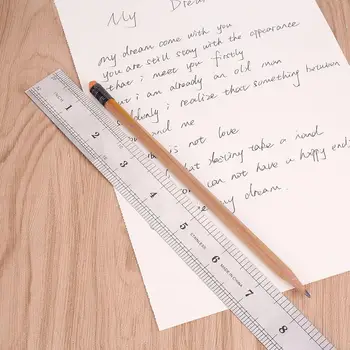 My Dre
my dream come wish you
you are still stay with the appearance
that i meet you firstly
that i am already an old man
suddenly i realize that something between
and me
is not love
that lasting take a hand
can not have a happy end
my dream.
1 2 3 4 5 6 7 8
STAINLESS
MADE IN CHINA